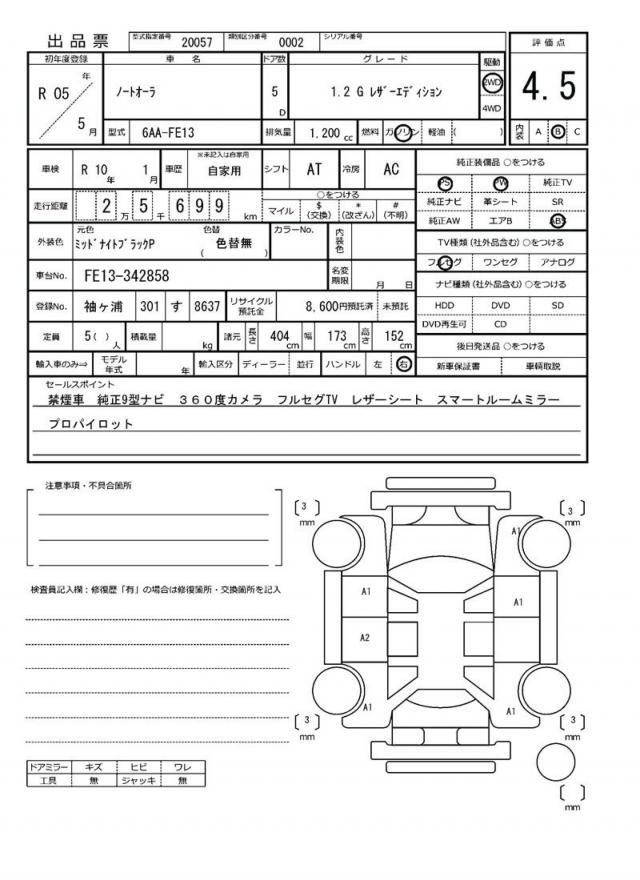 出品票 型式指定番号 20057 類別区分番号 0002 シリアル番号
評価点
4.5
内装 A B C
初年度登録 車名 ドア数 グレード 駆動
R 05 年 5 月 ノートオーラ 5 D 1.2 G レザーエディション 2WD 4WD
型式 6AA-FE13 排気量 1.200 cc 燃料 ガソリン 軽油 ( )
車検 R 10 年 1 月 車歴 ※未記入は自家用 自家用 シフト AT 冷房 AC
走行距離 2 万 5 千 6 9 9 km
○をつける
マイル $ (交換) * (改ざん) # (不明)
外装色 元色 ミッドナイトブラックP 色替 ( 色替無 ) カラーNo. 内装色
車台No. FE13-342858 名変期限 月 日
登録No. 袖ヶ浦 301 す 8637 リサイクル預託金 8,600円預託済 未預託
定員 5( ) 人 積載量 kg 諸元 長さ 404 cm 幅 173 cm 高さ 152 cm
輸入車のみ⇒ モデル年式 年 輸入区分 ディーラー 並行 ハンドル 左 右
純正装備品 ○をつける
PS PW 純正TV
純正ナビ 革シート SR
純正AW エアB ABS
TV種類 (社外品含む) ○をつける
フルセグ ワンセグ アナログ
ナビ種類 (社外品含む) ○をつける
HDD DVD SD
DVD再生可 CD
後日発送品 ○をつける
新車保証書 車輌取説
セールスポイント
禁煙車 純正9型ナビ 360度カメラ フルセグTV レザーシート スマートルームミラー
プロパイロット
注意事項・不具合箇所
検査員記入欄：修復歴「有」の場合は修復箇所・交換箇所を記入
ドアミラー キズ ヒビ ワレ
工具 無 ジャッキ 無
[ 3 ] mm
[ 3 ] mm
A1
A1
A1
A2
A1
A1
[ 3 ] mm
[ 3 ] mm
[ ] mm